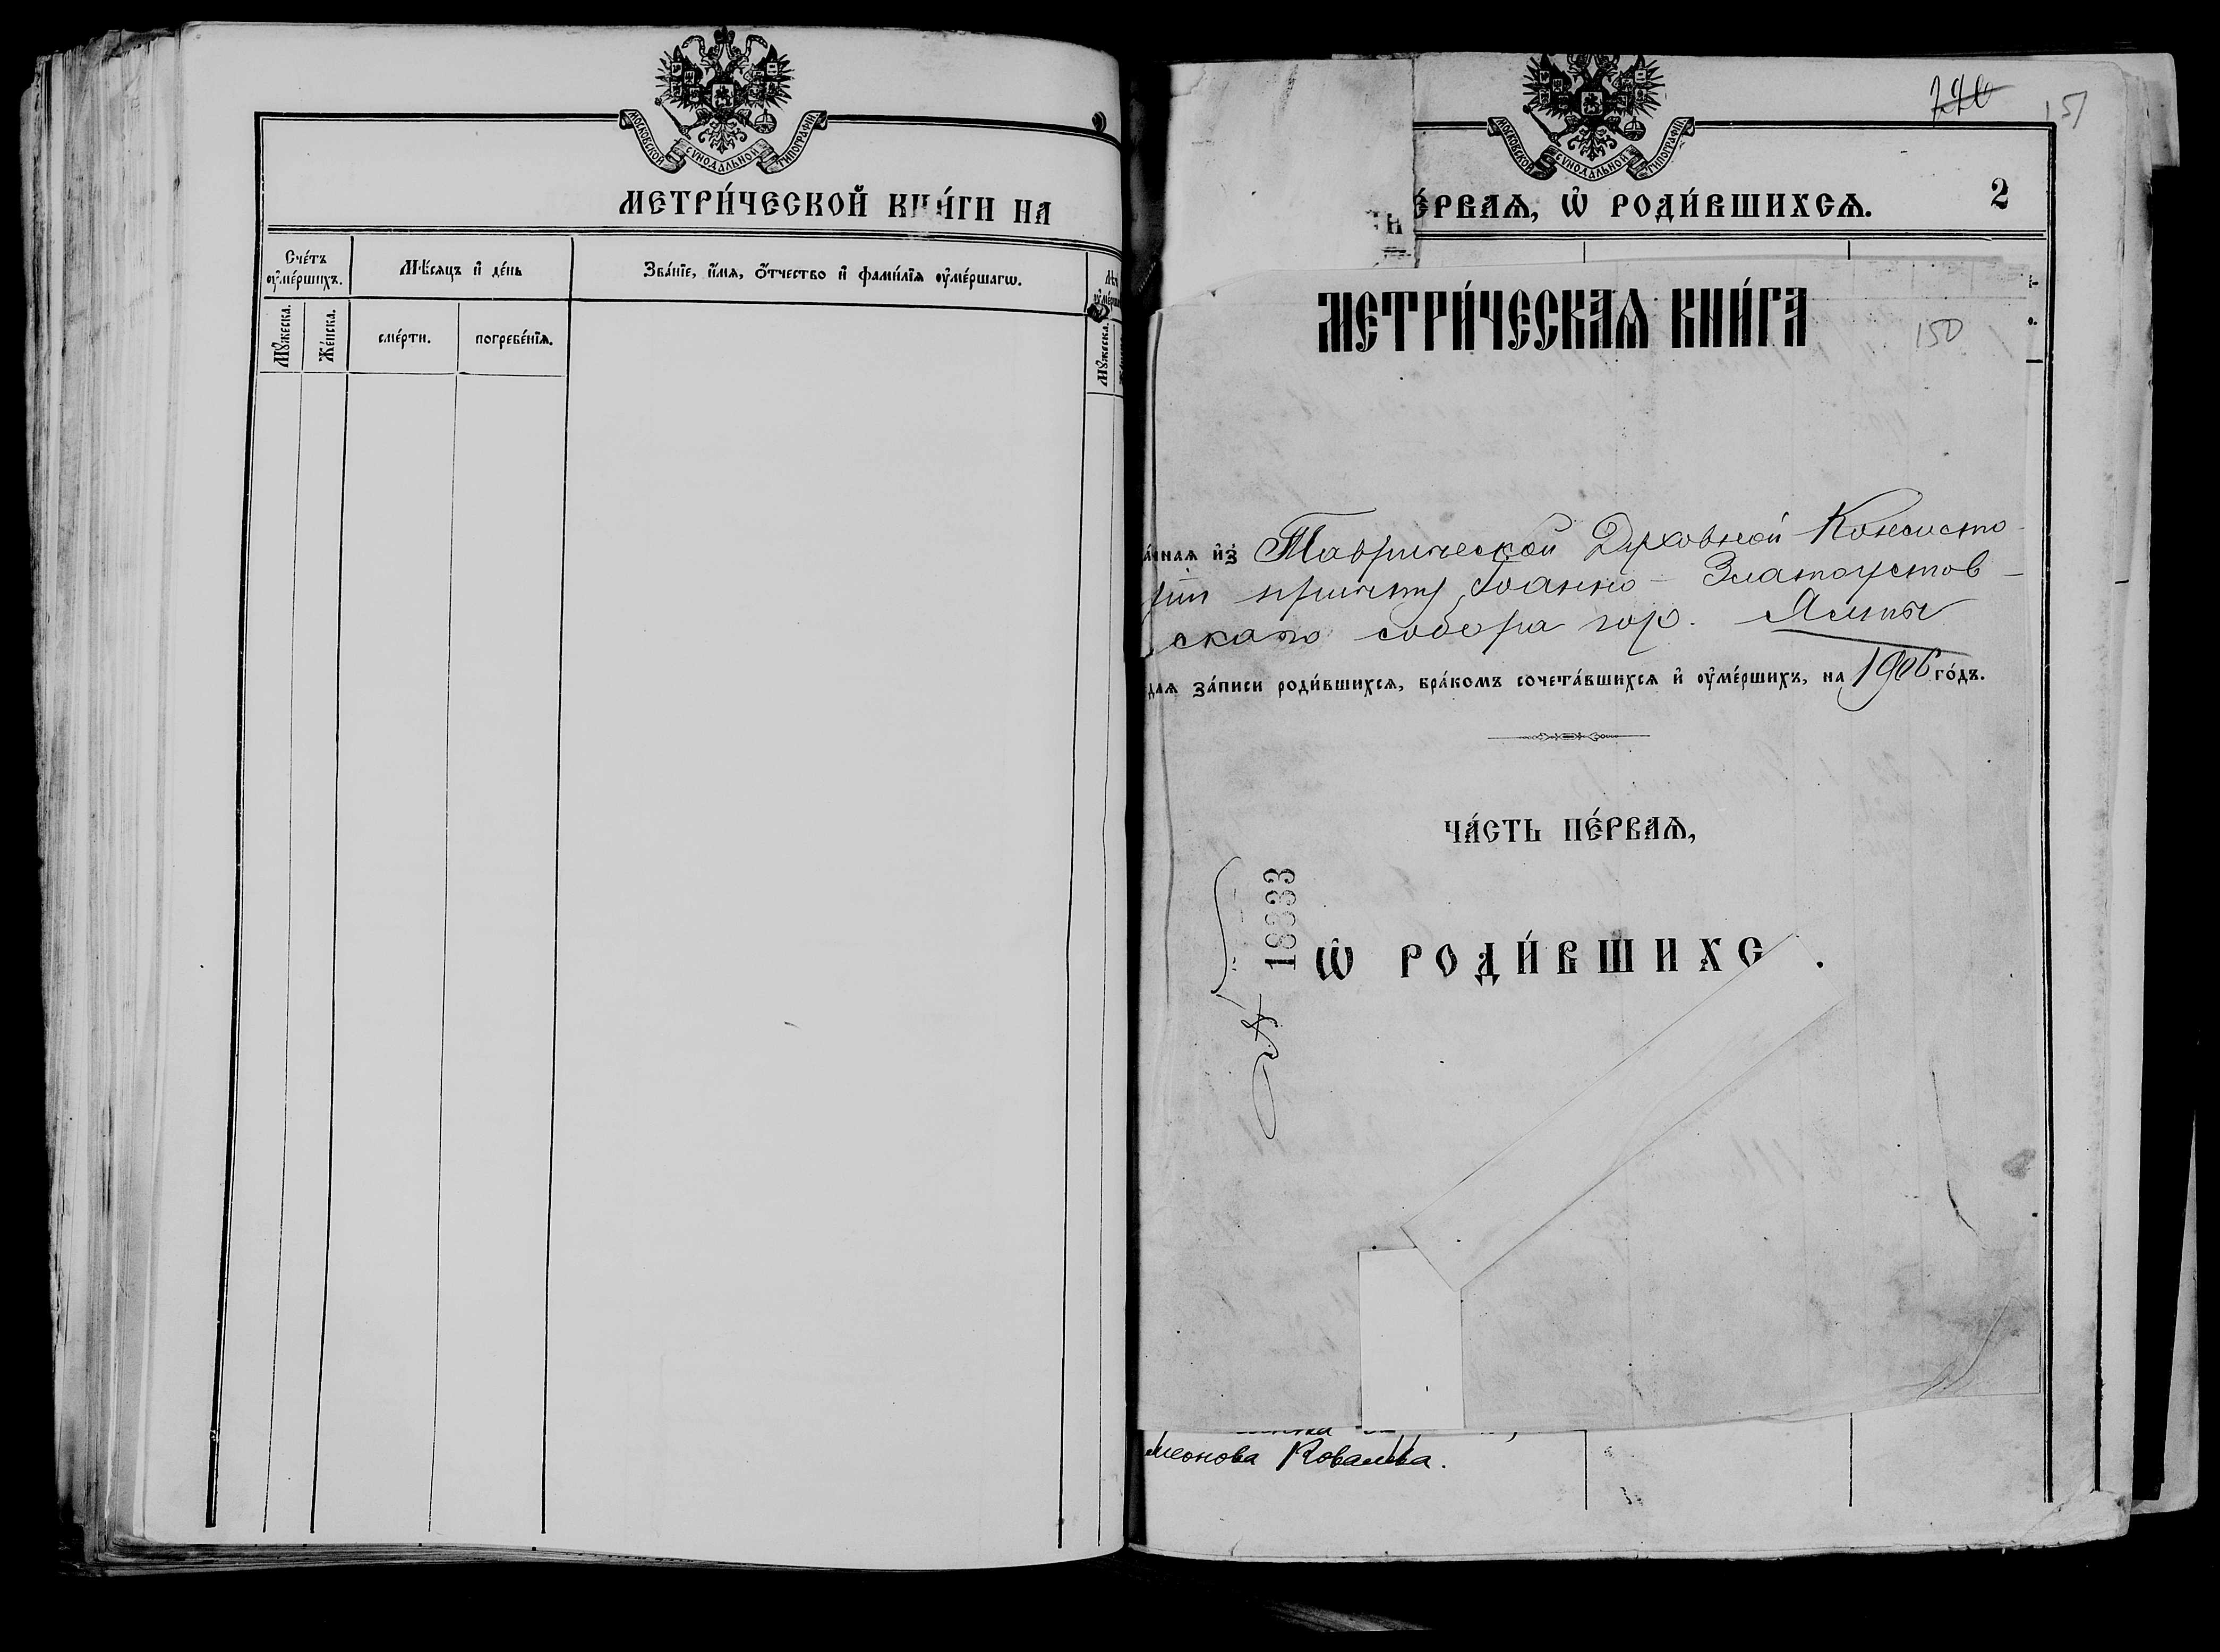 МОСКОВСКОЙ СѴНОДАЛЬНОЙ ТИПОГРАФІИ
МЕТРИ́ЧЕСКОЙ КНИ́ГИ НА
Сче́тъ ᲂу҆ме́ршихъ.
Мѣ́сяцъ и҆ де́нь
Зва́нїе, и҆́мя, ѻ҆́тчество и҆ фами́лїя ᲂу҆ме́ршагѡ.
Мꙋ́жеска.
Же́нска.
сме́рти.
погребе́нїѧ.
Мꙋ́жеска.
МОСКОВСКОЙ СѴНОДАЛЬНОЙ ТИПОГРАФІИ
151
Е́РВАѦ, Ѡ҆ РОДИ́ВШИХСѦ.
2
МЕТРИ́ЧЕСКАѦ КНИ́ГА
150
а́ннаѧ и҆з̾ Таврической Духовной Консисто-
ріи причту Іоанно-Златоустов-
скаго собора гор. Ялты
длѧ за́писи роди́вшихсѧ, бра́комъ сочета́вшихсѧ и҆ ᲂу҆ме́ршихъ, на 1906 го́дъ.
ЧА́СТЬ ПЕ́РВАѦ,
18333
Ѡ҆ РОДИ́ВШИХС .
меонова Ковалева.